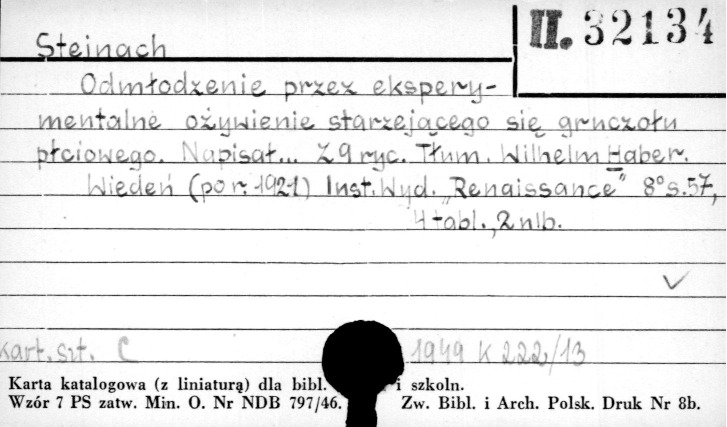 II. 32134
Steinach
Odmłodzenie przez ekspery-
mentalne ożywienie starzejącego się gruczołu
płciowego. Napisał... Z 9 ryc. Tłum. Wilhelm Haber.
Wiedeń (po r. 1921) Inst. Wyd. „Renaissance" 8° s. 57,
4 tabl., 2 nlb.
kart. szt. C 1949 K 222/13
Karta katalogowa (z liniaturą) dla bibl. i szkoln.
Wzór 7 PS zatw. Min. O. Nr NDB 797/46. Zw. Bibl. i Arch. Polsk. Druk Nr 8b.